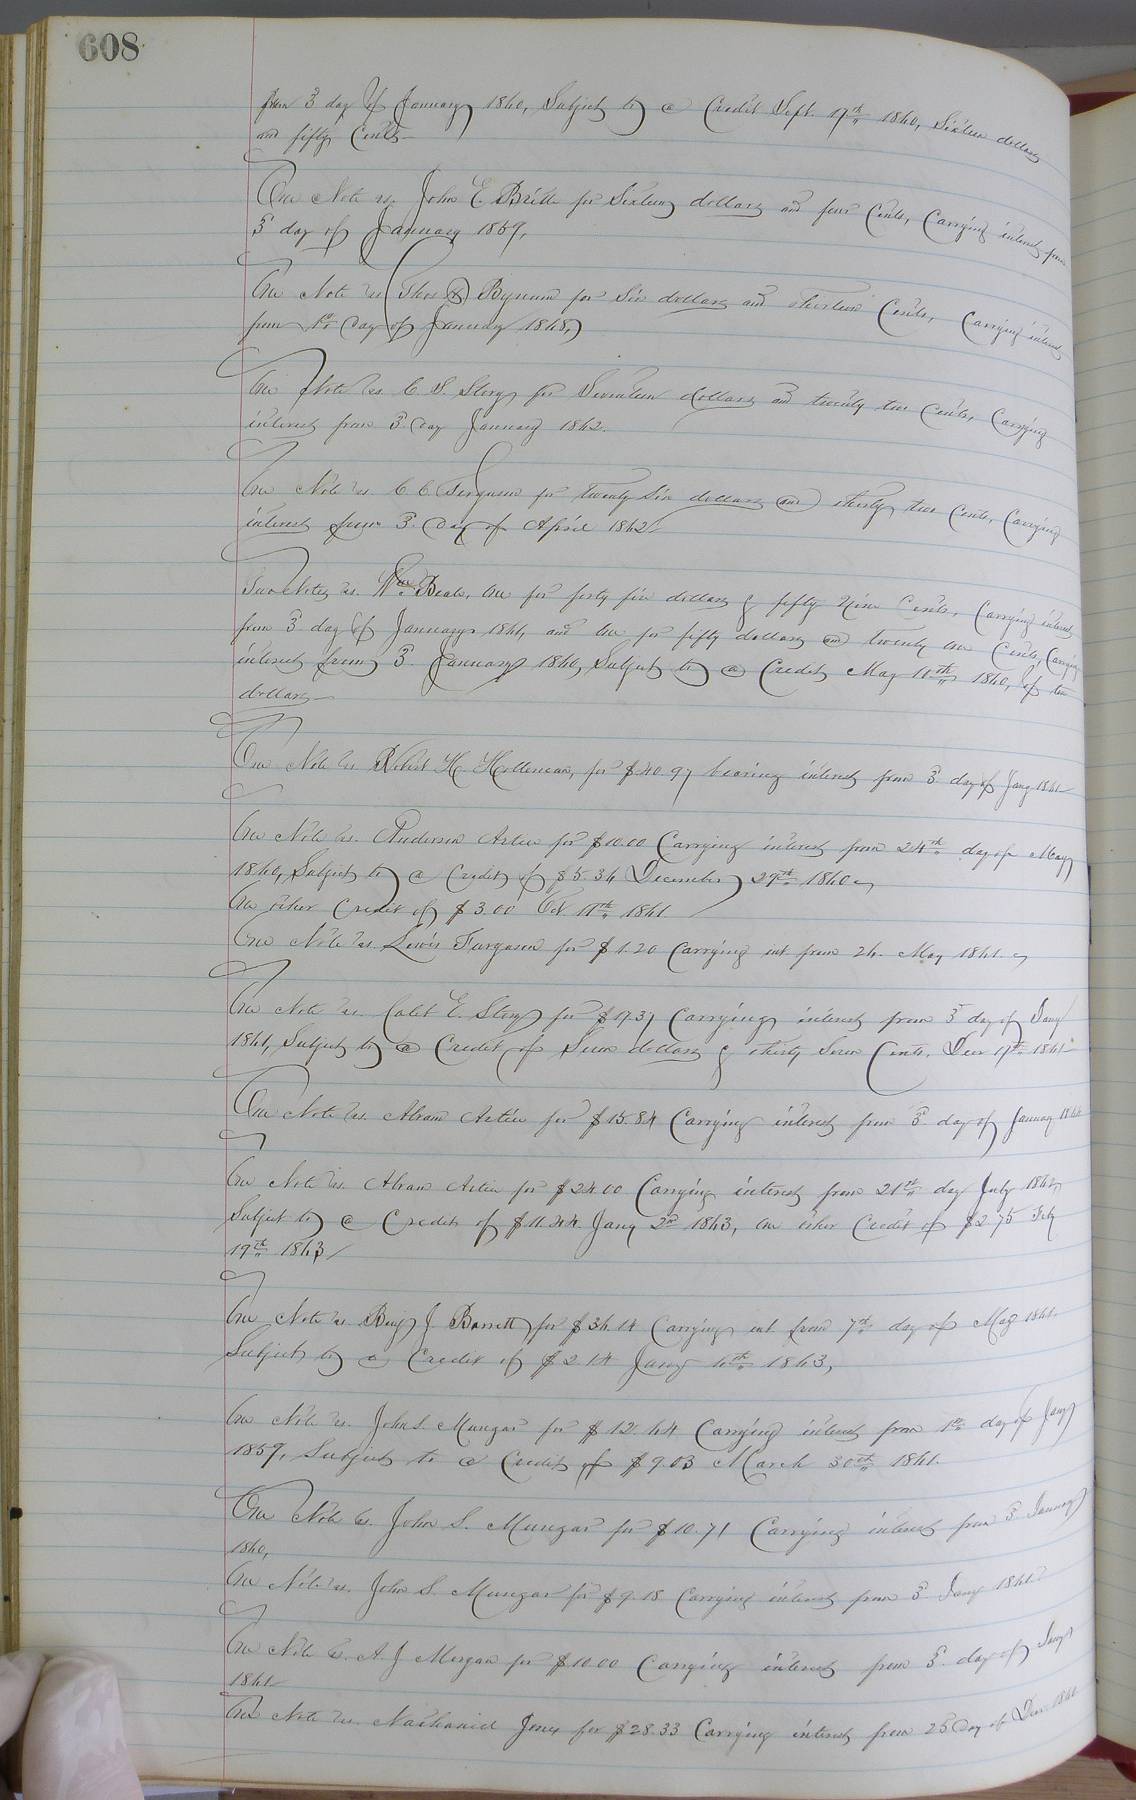 608
from 3 day of January 1860, Subject to a Credit Sept. 17th 1860, Sixteen dollars
and fifty Cents
One Note vs. John E. Britt for Sixteen dollars and four Cents, Carrying interest from
3 day of January 1859,
One Note vs Thos Bynum for Six dollars and thirteen Cents, Carrying interest
from 1st Day of January 1868,
One Note vs. C. S. Story for Seventeen dollars and twenty two Cents, Carrying
interest from 3 Day January 1862.
One Note vs. C. C. Ferguson for twenty Six dollars and thirty two Cents, Carrying
interest from 3. Day of April 1862
Two Notes vs. Wm Beale, One for forty five dollars & fifty Nine Cents, Carrying interest
from 3 day of January 1861, and One for fifty dollars and twenty one Cents, Carrying
interest from 3. January 1860, Subject to a Credit May 11th 1860, of ten
dollars
One Note vs Robert H. Holleman, for $40.97 bearing interest from 3 day of Jany 1861
One Note vs. Anderson Artice for $10.00 Carrying interest from 24th day of May
1860, Subject to a Credit of $5.34 December 29th 1860
An other Credit of $3.00 Oct 11th 1861
One Note vs. Lewis Furgason for $1.20 Carrying int from 24. May 1861.
One Note vs. Calet E. Story for $17.37 Carrying interest from 3 day of Jany
1861, Subject to a Credit of Seven dollars & thirty Seven Cents. Decr 17th 1861
One Note vs. Abram Artice for $15.84 Carrying interest from 3. day of January
One Note vs. Abram Artice for $24.00 Carrying interest from 21st day July 1862,
Subject to a Credit of $11.44 Jany 2nd 1863, An other Credit of $2.75 Feb
19th 1863
One Note vs. Benj J Barrett for $36.14 Carrying int from 7th day of May 1861.
Subject to a Credit of $2.14 Jany 10th 1863,
One Note vs. John S. Mungar for $12.64 Carrying interest from 1st day of Jany
1859, Subject to a Credit of $9.03 March 30th 1861.
One Note vs. John S. Mungar for $10.71 Carrying interest from 3 January
1860,
One Note vs. John S. Mungar for $9.18 Carrying interest from 3 Jany 1861
One Note vs. A. J Morgan for $10.00 Carrying interest from 3. day of Jany
1861
One Note vs. Nathaniel Jones for $28.33 Carrying interest from 25 Day of Decr 1860